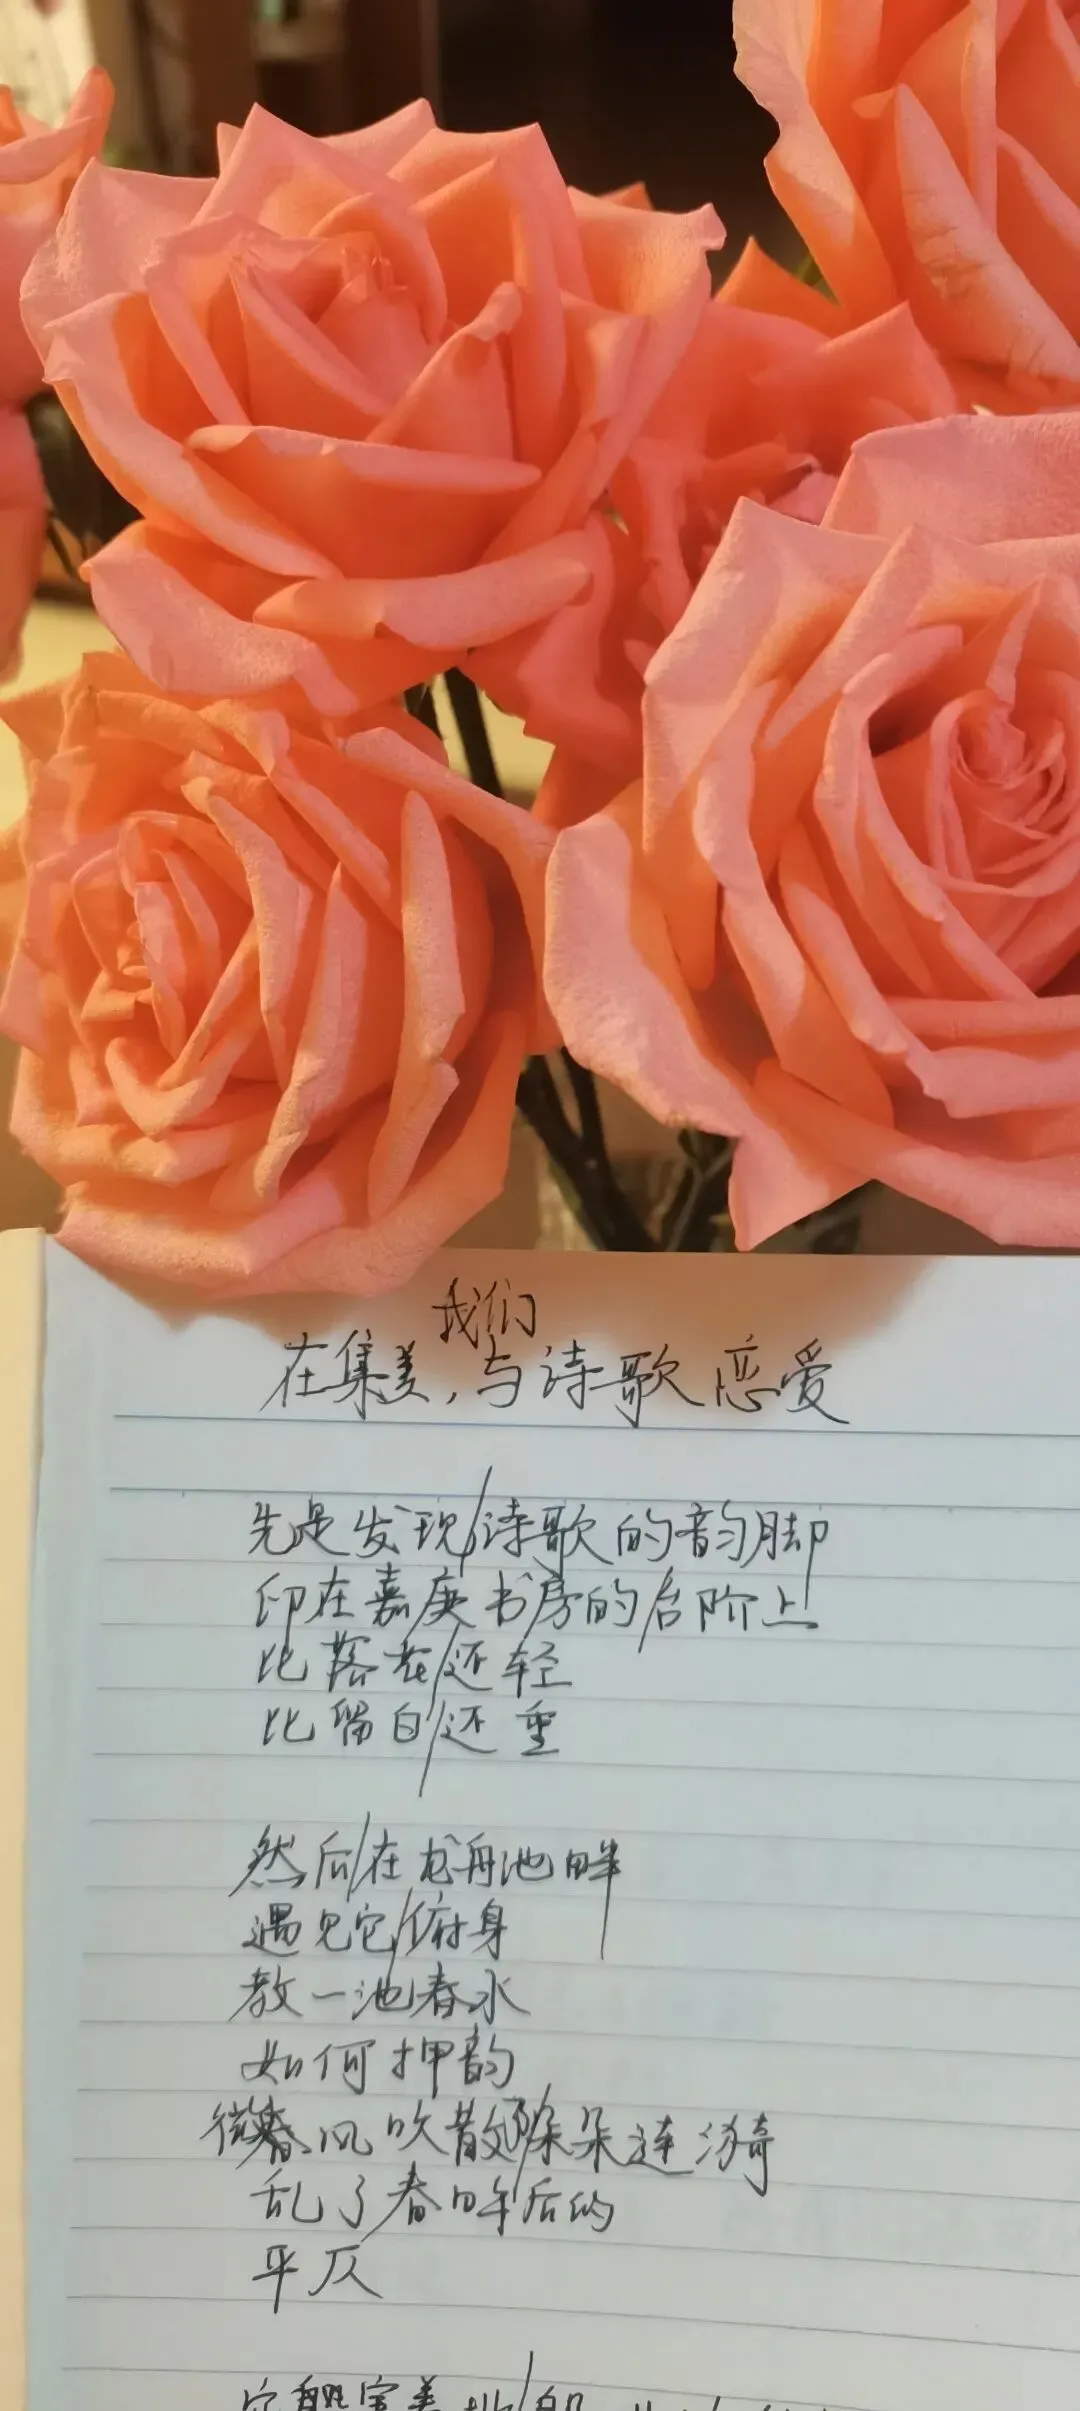 我们
在集美,与诗歌恋爱
先是发现/诗歌的韵脚
印在嘉庚书房的台阶上
比落花/还轻
比留白/还重
然后/在龙舟池畔
遇见它/俯身
教一池春水
如何押韵
微风吹散/朵朵涟漪
乱了春/后的
平仄